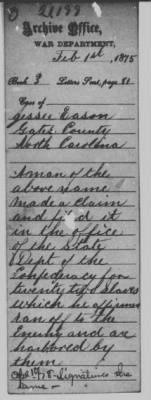 21199
Archive Office,
WAR DEPARTMENT,
Feb 1st, 1875
Book 3 Letters Sent, page 81
Case of
Jesse Eason
Gates County
North Carolina
A man of the
above name
made a claim
and fil'd it
in the office
of the State
Dept of the
Confederacy for
twenty two Slaves
which he affirmed
ran off to the
Enemy and are
harbored by
them
Signatures the
same –